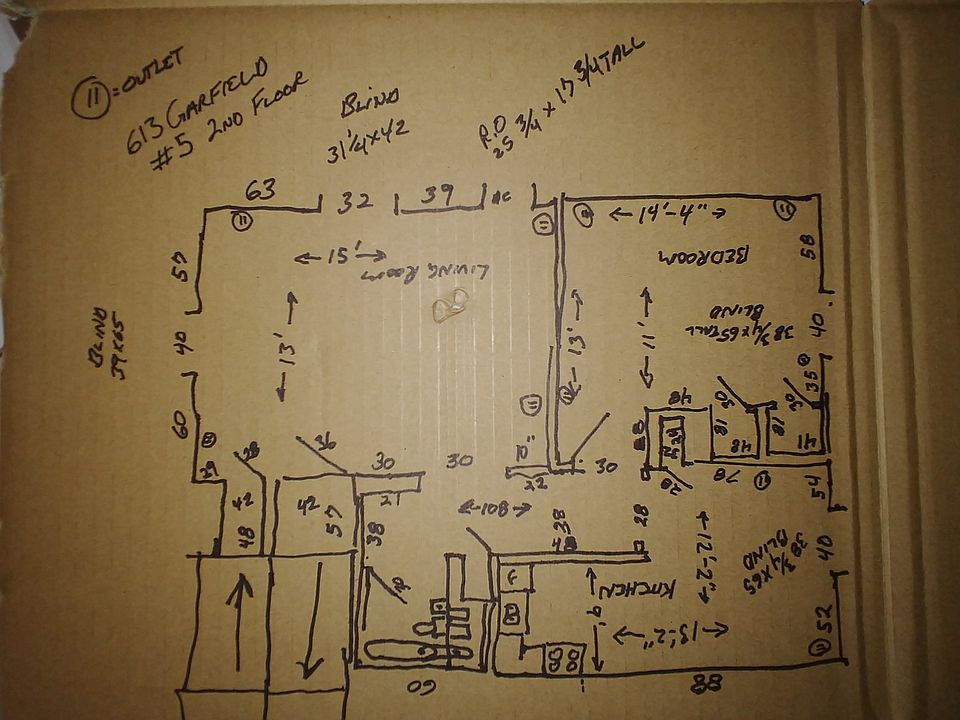 11 = OUTLET
613 GARFIELD
#5 2ND FLOOR
BLIND
31 1/4 X 42
R.O
25 3/4 X 17 3/4 TALL
63
32
39
AC
11
11
11
14'-4"
57
15'
LIVING ROOM
BEDROOM
58
BLIND
39X65
40
13'
13'
11'
38 3/4 X 65 TALL
BLIND
40
60
11
11
48
30
30
35
39
36
18
48
18
41
30
30
22
30
78
11
54
42
48
42
57
21
38
108
28
28
12'-2"
38 3/4 X 65
BLIND
40
F
KITCHEN
9'
13'-2"
11
52
60
88